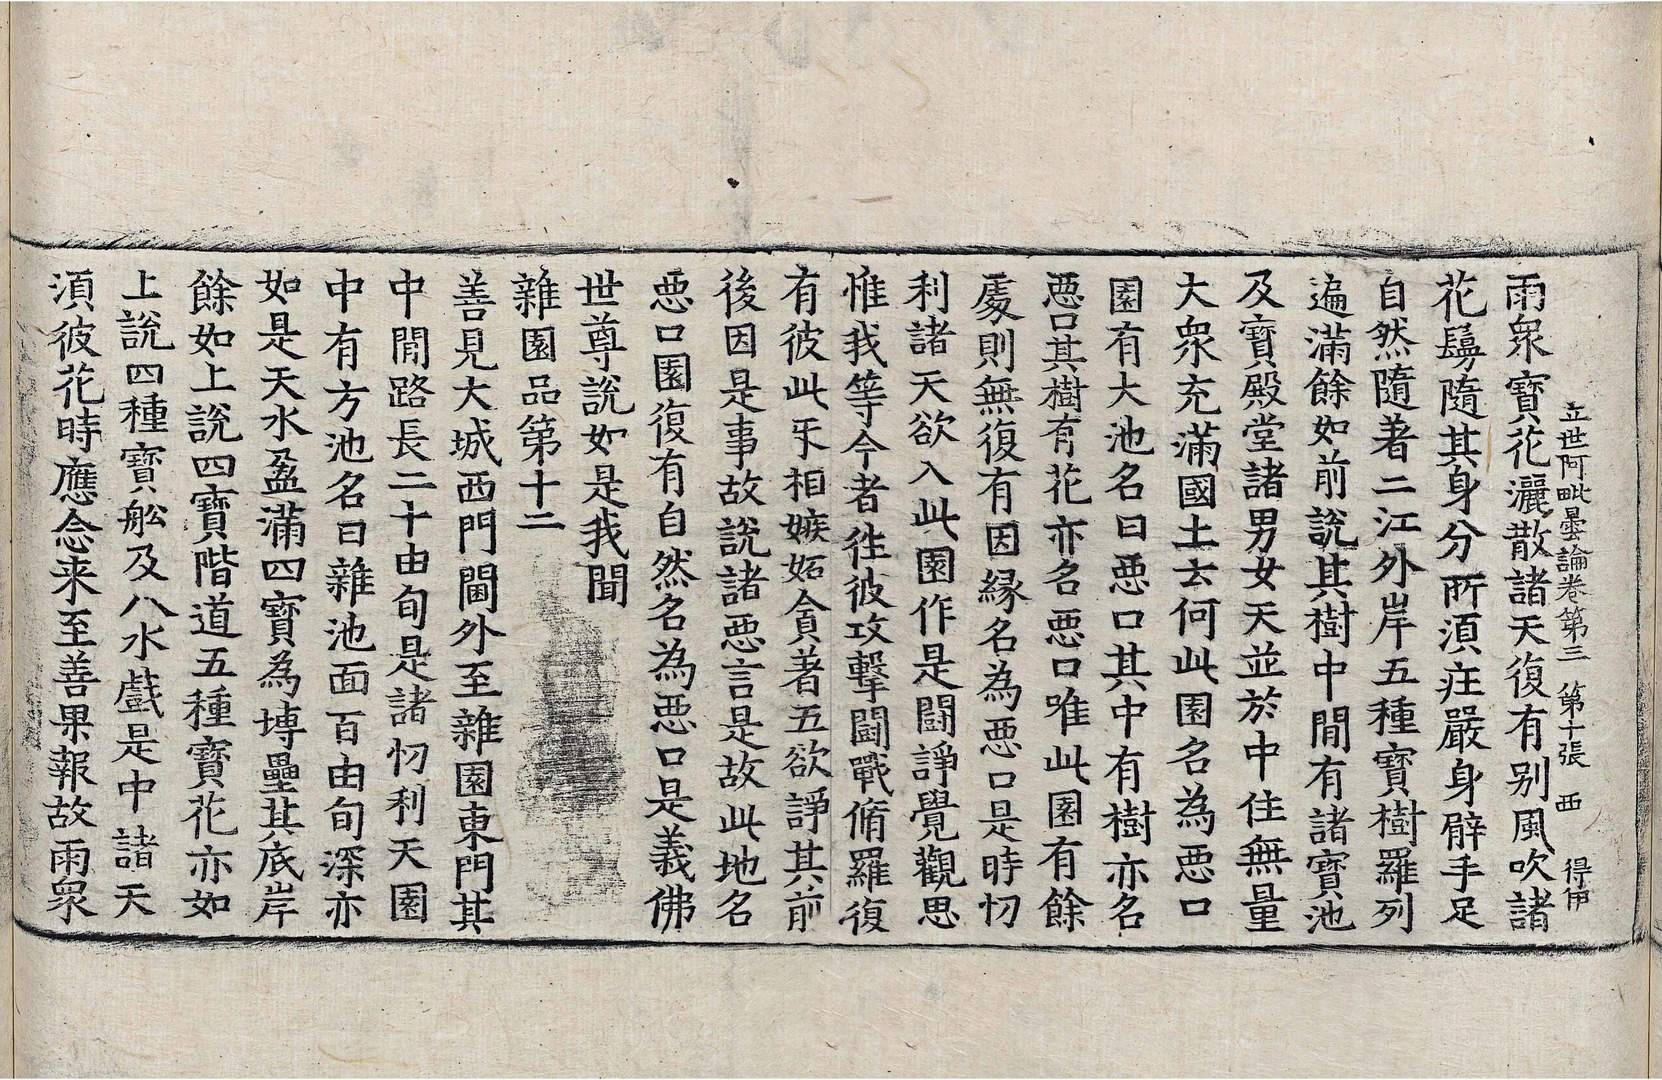 立世阿毗曇論卷第三 第十張 西 得伊
雨眾寶花灑散諸天復有别風吹諸
花鬘隨其身分所湏㽵嚴身臂手足
自然隨著二江外岸五種寶樹羅列
遍滿餘如前說其樹中間有諸寶池
及寶殿堂諸男女天並於中住無量
大眾充滿國土云何此園名為惡口
園有大池名曰惡口其中有樹亦名
惡口其樹有花亦名惡口唯此園有餘
處則無復有因緣名為惡口是時忉
利諸天欲入此園作是鬪諍覺觀思
惟我等今者徃彼攻擊鬪戰脩羅復
有彼此乐相嫉妬貪著五欲諍其前
後因是事故說諸惡言是故此地名
惡口園復有自然名為惡口是義佛
世尊說如是我聞
雜園品第十二
善見大城西門閫外至雜園東門其
中間路長二十由旬是諸忉利天園
中有方池名曰雜池面百由旬深亦
如是天水盈滿四寶為塼壘其底岸
餘如上說四寶階道五種寶花亦如
上說四種寶舩及八水戲是中諸天
湏彼花時應念来至善果報故雨眾